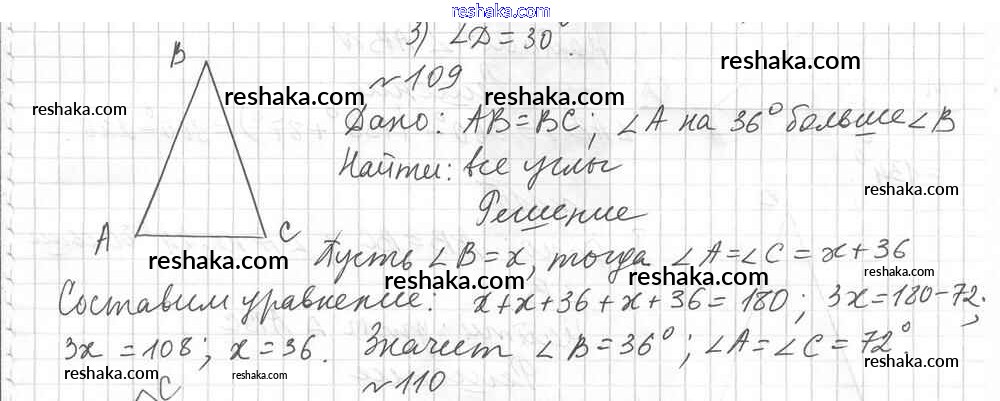 reshaka.com
3) ∠D = 30°.
№109
reshaka.com
B
reshaka.com reshaka.com reshaka.com
Дано: AB = BC; ∠A на 36° больше ∠B
Найти: все углы
reshaka.com
Решение
reshaka.com
A C
Пусть ∠B = x, тогда ∠A = ∠C = x + 36
reshaka.com reshaka.com reshaka.com
Составим уравнение: x + x + 36 + x + 36 = 180; 3x = 180 - 72;
3x = 108; x = 36. Значит ∠B = 36°; ∠A = ∠C = 72°.
reshaka.com reshaka.com reshaka.com
C №110